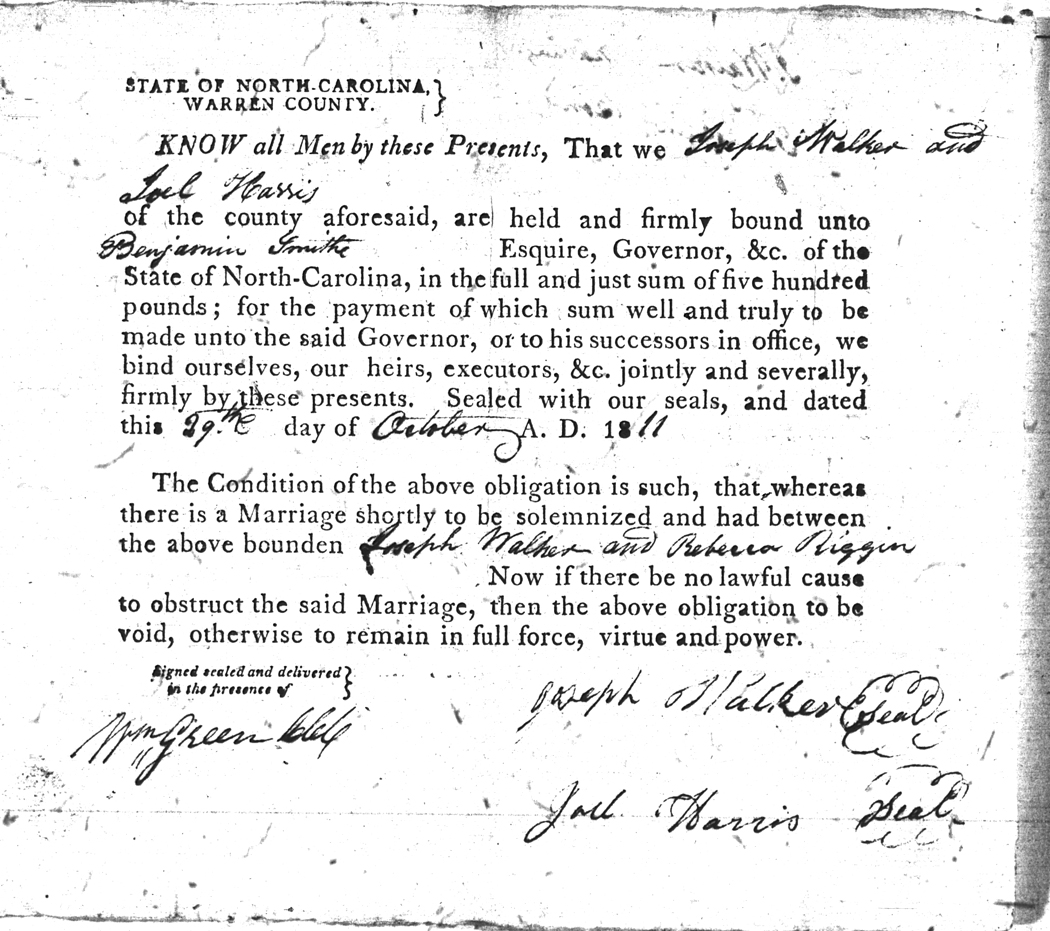 STATE OF NORTH-CAROLINA,}
WARREN COUNTY.
KNOW all Men by these Presents, That we Joseph Walker and
Joel Harris
of the county aforesaid, are held and firmly bound unto
Benjamin Smithe Esquire, Governor, &c. of the
State of North-Carolina, in the full and just sum of five hundred
pounds; for the payment of which sum well and truly to be
made unto the said Governor, or to his successors in office, we
bind ourselves, our heirs, executors, &c. jointly and severally,
firmly by these presents. Sealed with our seals, and dated
this 29.th day of October A. D. 1811
The Condition of the above obligation is such, that, whereas
there is a Marriage shortly to be solemnized and had between
the above bounden Joseph Walker and Rebecca Riggin
Now if there be no lawful cause
to obstruct the said Marriage, then the above obligation to be
void, otherwise to remain in full force, virtue and power.
Signed sealed and delivered}
in the presence of
Joseph Walker Seal
Wm Green
Joel Harris Seal